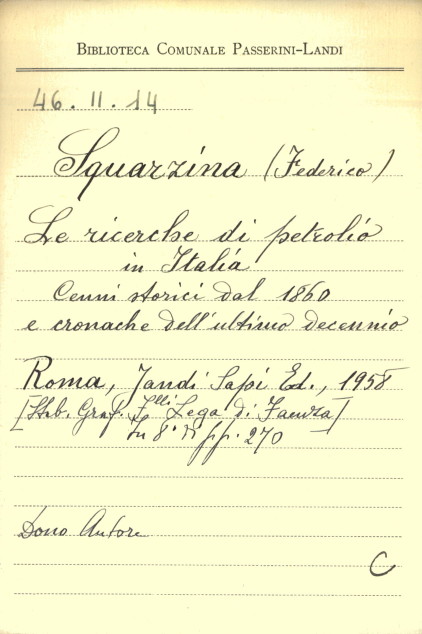 BIBLIOTECA COMUNALE PASSERINI-LANDI
46. II. 14
Squarzina (Federico)
Le ricerche di petrolio
in Italia
Cenni storici dal 1860
e cronache dell'ultimo decennio
Roma, Jandi Sapi Ed., 1958
[Stab. Graf. F.lli Lega di Faenza]
In 8° pp. 270
Dono Autore
C